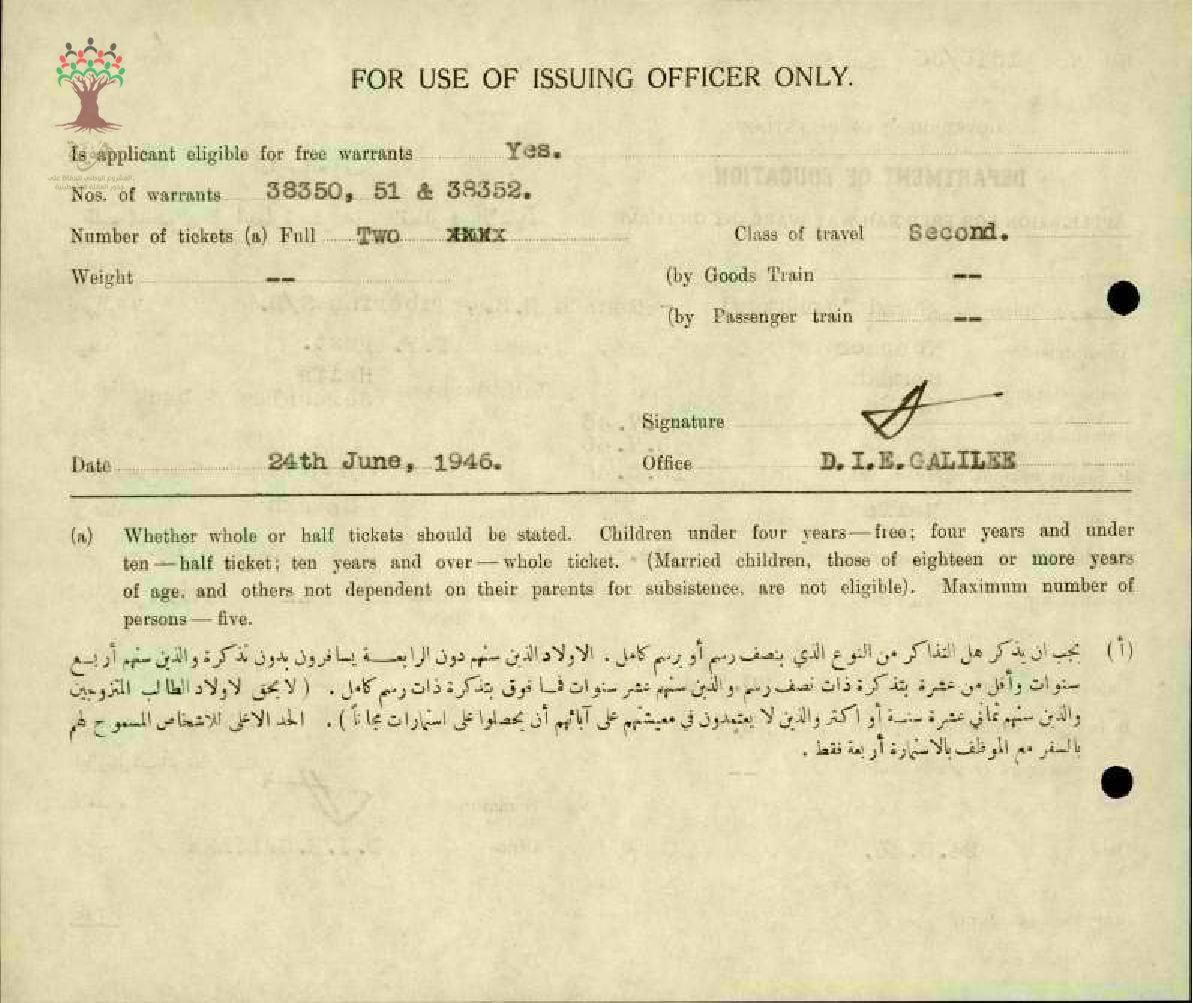 FOR USE OF ISSUING OFFICER ONLY.
Is applicant eligible for free warrants Yes.
Nos. of warrants 38350, 51 & 38352.
Number of tickets (a) Full Two xxxx Class of travel Second.
Weight -- (by Goods Train --
(by Passenger train --
Signature
Date 24th June, 1946. Office D.I.E.GALILEE
(a) Whether whole or half tickets should be stated. Children under four years—free; four years and under
ten—half ticket; ten years and over—whole ticket. (Married children, those of eighteen or more years
of age, and others not dependent on their parents for subsistence, are not eligible). Maximum number of
persons—five.
(أ) يجب ان يذكر هل التذاكر من النوع الذي بنصف رسم أو برسم كامل . الاولاد الذين سنهم دون الرابعة يسافرون بدون تذكرة والذين سنهم أربع
سنوات وأقل من عشرة بتذكرة ذات نصف رسم والذين سنهم عشر سنوات فما فوق بتذكرة ذات رسم كامل . ( لا يحق لاولاد الطالب المتزوجين
والذين سنهم ثماني عشرة سنة أو اكثر والذين لا يعتمدون في معيشتهم على آبائهم أن يحصلوا على استمارات مجاناً ) . الحد الاعلى للاشخاص المسموح لهم
بالسفر مع الموظف بالاستمارة أربعة فقط .